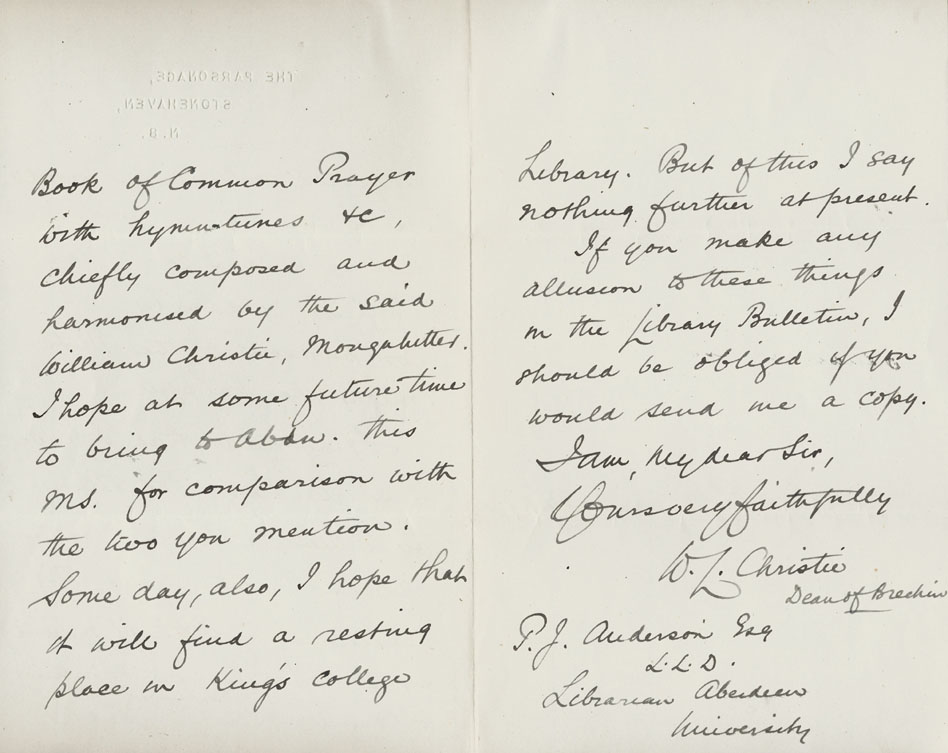 THE PARSONAGE,
STONEHAVEN,
N.B.
Book of Common Prayer
with hymn-tunes &c,
chiefly composed and
harmonised by the said
William Christie, Monquhitter.
I hope at some future time
to bring to Abdn. this
MS. for comparison with
the two you mention.
Some day, also, I hope that
it will find a resting
place in King's College
Library. But of this I say
nothing further at present.
If you make any
allusion to these things
in the Library Bulletin, I
should be obliged if you
would send me a copy.
I am, My dear Sir,
Yours very faithfully
W. L. Christie
Dean of Brechin
P. J. Anderson Esq
L.L.D.
Librarian Aberdeen
University